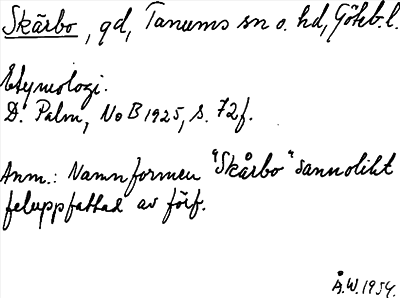 Skärbo, gd, Tanums sn o. hd, Göteb. l.
Etymologi.
D. Palm, NoB 1925, s. 72f.
Anm.: Namnformen "Skårbo" sannolikt
feluppfattad av förf.
Å.W. 1954.